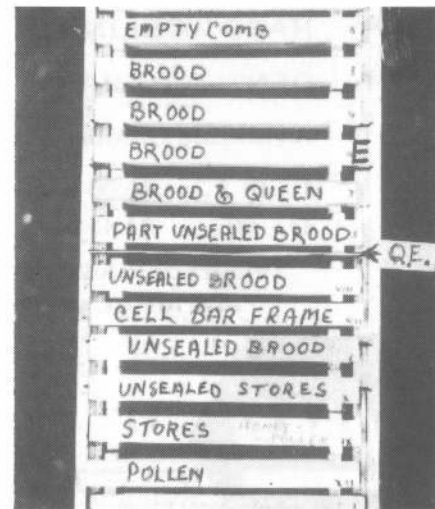 EMPTY COMB
BROOD
BROOD
BROOD
BROOD & QUEEN
PART UNSEALED BROOD
Q.E.
UNSEALED BROOD
CELL BAR FRAME
UNSEALED BROOD
UNSEALED STORES
STORES
HONEY
POLLEN
POLLEN